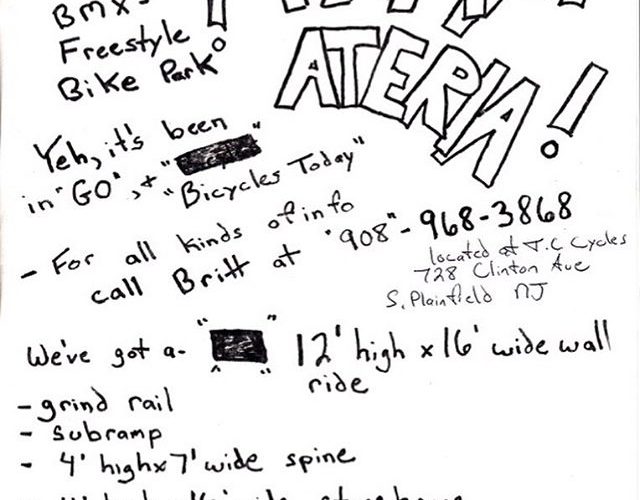 BMX-
Freestyle
Bike Park!
ATERIA!
Yeh, it's been
in "GO", + "Bicycles Today"
- For all kinds of info
call Britt at "908"-968-3868
located at T.C Cycles
728 Clinton Ave
S. Plainfield NJ
We've got a- " " 12' high x 16' wide wall
ride
- grind rail
- subramp
- 4' high x 7' wide spine